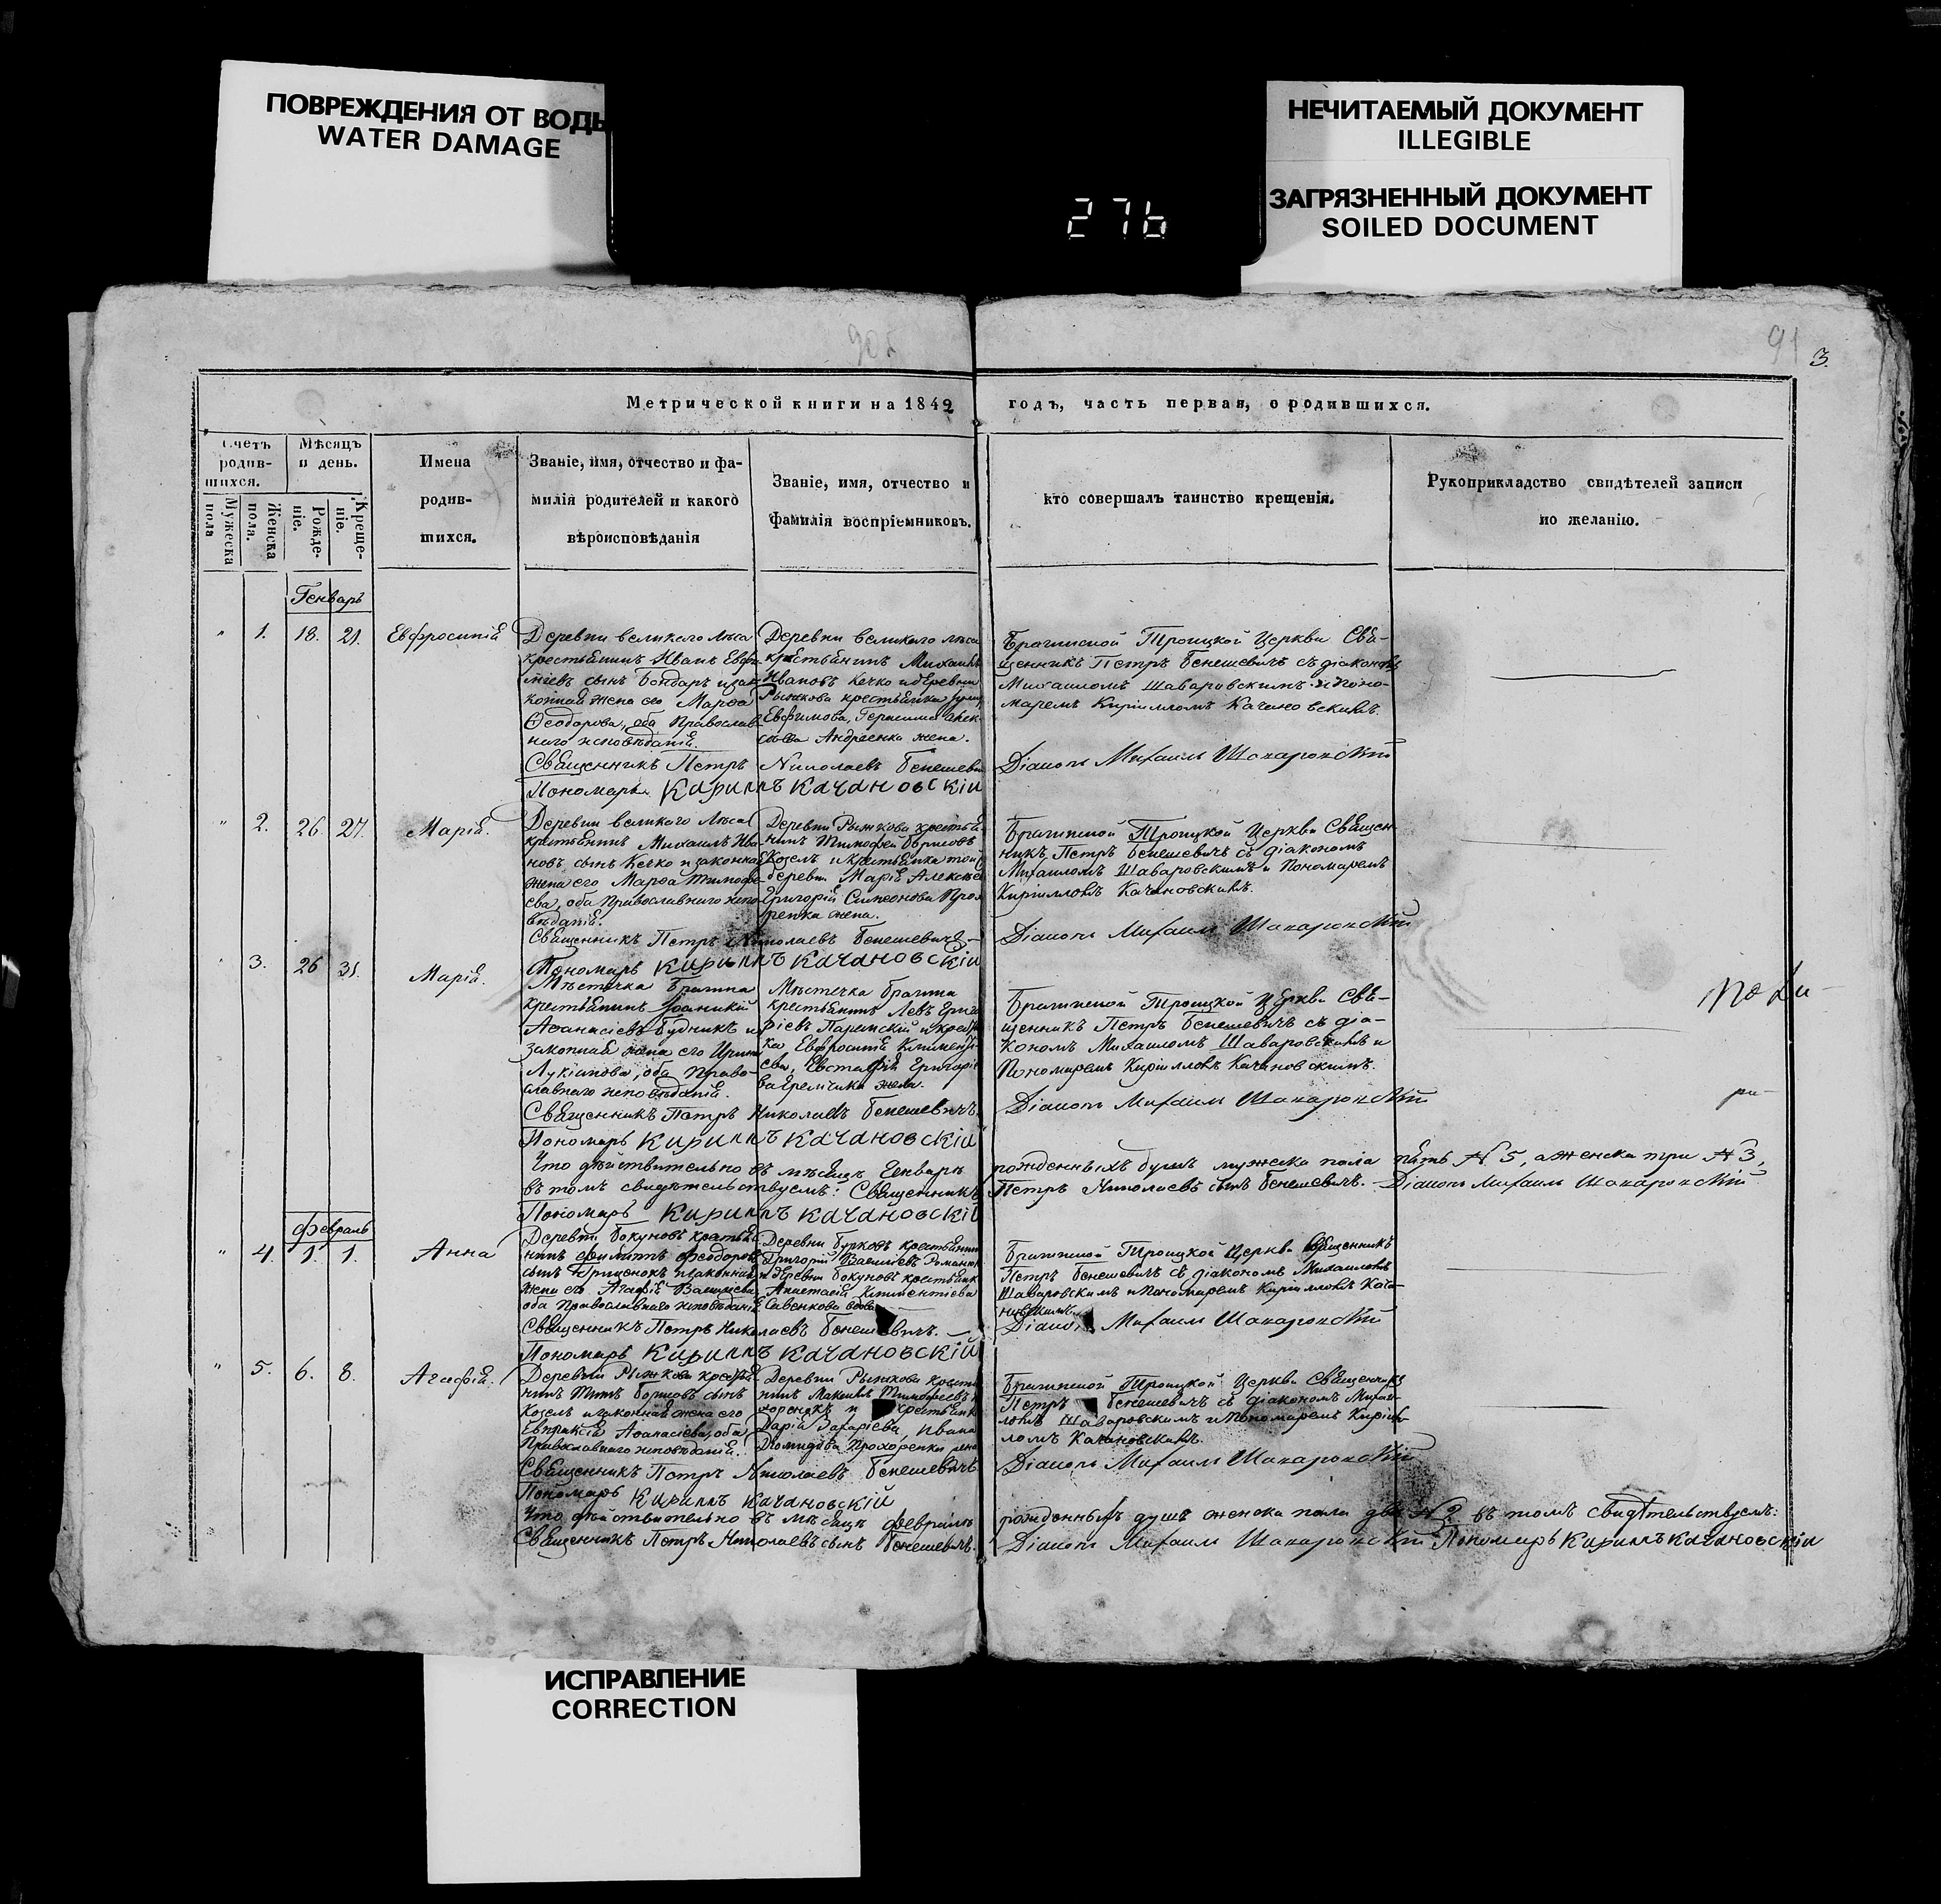 ПОВРЕЖДЕНИЯ ОТ ВОДЫ
WATER DAMAGE
НЕЧИТАЕМЫЙ ДОКУМЕНТ
ILLEGIBLE
ЗАГРЯЗНЕННЫЙ ДОКУМЕНТ
SOILED DOCUMENT
276
91
3.
Метрической книги на 1849 годъ, часть первая, о родившихся.
Счетъ родив-шихся.
Мужеска пола
Женска пола.
Мѣсяцъ и день.
Рожде-ніе.
Креще-ніе.
Имена
родив-
шихся.
Званіе, имя, отчество и фа-
милія родителей и какого
вѣроисповѣданія
Званіе, имя, отчество и
фамилія воспріемниковъ.
кто совершалъ таинство крещенія.
Рукоприкладство свидѣтелей записи
по желанію.
Генварь
" 1. 18. 21. Евфросинія
Деревни великаго Лѣса
крестьянинъ Иванъ Евфи-
міевъ сынъ Бондарь и за-
конная жена его Марѳа
Ѳеодорова, оба Православ-
наго исповѣданія.
Деревни великаго лѣса
крестьянинъ Михаилъ
Ивановъ Кечко и деревни
Рыжкова крестьянка
Евфимова, Герасима Алек-
сѣева Андреенка жена.
Брагинской Троицкой Церкви Свя-
щенникъ Петръ Бенешевичъ съ діакономъ
Михаиломъ Шаваровскимъ и Поно-
маремъ Кирилломъ Качановскимъ.
Священникъ Петръ Николаевъ Бенешевичъ
Діаконъ Михаилъ Шаваровскій
Пономарь Кириллъ Качановскій
" 2. 26. 27. Марія.
Деревни великаго Лѣса
крестьянинъ Михаилъ Ива-
новъ сынъ Кечко и законная
жена его Марѳа Тимофе-
ева, оба Православнаго испо-
вѣданія.
Деревни Рыжкова крестья-
нинъ Тимофей Борисовъ
Козелъ и крестьянка той
деревни Марія Алексѣева
Григорія Симеонова Прохо-
ренка жена.
Брагинской Троицкой Церкви Священ-
никъ Петръ Бенешевичъ съ діакономъ
Михаиломъ Шаваровскимъ и Пономаремъ
Кирилломъ Качановскимъ.
Священникъ Петръ Николаевъ Бенешевичъ
Діаконъ Михаилъ Шаваровскій
Пономарь Кириллъ Качановскій
3. 26 31. Марія.
Мѣстечка Брагина
крестьянинъ Іоанникій
Аѳанасіевъ Будникъ и
законная жена его Ирина
Лукіанова, оба Право-
славнаго исповѣданія.
Мѣстечка Брагина
крестьянинъ Левъ Григо-
ріевъ Паремскій и крестьян-
ка Евфросинія Клименті-
ева, Евстафія Григоріе-
ва Еремчика жена.
Брагинской Троицкой Церкви Свя-
щенникъ Петръ Бенешевичъ съ діа-
кономъ Михаиломъ Шаваровскимъ и
Пономаремъ Кирилломъ Качановскимъ.
Священникъ Петръ Николаевъ Бенешевичъ.
Діаконъ Михаилъ Шаваровскій
Пономарь Кириллъ Качановскій
Что дѣйствительно въ мѣсяцѣ Генварѣ рожденныхъ душъ мужеска пола пять № 5, а женска три № 3,
въ томъ свидѣтельствуемъ: Священникъ Петръ Николаевъ сынъ Бенешевичъ. Діаконъ Михаилъ Шаваровскій
Пономарь Кириллъ Качановскій
февраль
" 4. 1. 1. Анна
Деревни Бокуновъ крестья-
нинъ Филиппъ Ѳеодоровъ
сынъ Гриценокъ и законная
жена его Агафія Василіева
оба Православнаго исповѣданія
Деревни Бурковъ крестьянинъ
Григорій Василіевъ
и деревни Бокуновъ крестьянка
Анастасія Климентіева
Савенкова вдова
Брагинской Троицкой Церкви Священникъ
Петръ Бенешевичъ съ діакономъ Михаиломъ
Шаваровскимъ и Пономаремъ Кирилломъ Кача-
новскимъ.
Священникъ Петръ Николаевъ Бенешевичъ.
Діаконъ Михаилъ Шаваровскій
Пономарь Кириллъ Качановскій
" 5. 6. 8. Агафія.
Деревни Рыжкова крестья-
нинъ Титъ Борисовъ сынъ
Козелъ и законная жена его
Евпраксія Аѳанасіева, оба
Православнаго исповѣданія.
Деревни Рыжкова крестья-
нинъ Максимъ Тимофеевъ
и крестьянка
Дарія Захаріева, Ивана
Діомидова Прохоренки жена
Брагинской Троицкой Церкви Священникъ
Петръ Бенешевичъ съ діакономъ Михаи-
ломъ Шаваровскимъ и Пономаремъ Кирил-
ломъ Качановскимъ.
Священникъ Петръ Николаевъ Бенешевичъ
Діаконъ Михаилъ Шаваровскій
Пономарь Кириллъ Качановскій
Что дѣйствительно въ мѣсяцѣ февралѣ рожденныхъ душъ женска пола двѣ № 2 въ томъ свидѣтельствуемъ:
Священникъ Петръ Николаевъ сынъ Бенешевичъ. Діаконъ Михаилъ Шаваровскій Пономарь Кириллъ Качановскій
ИСПРАВЛЕНИЕ
CORRECTION